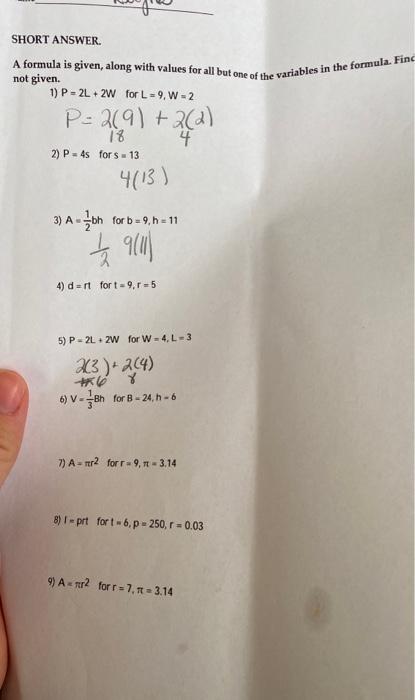 SHORT ANSWER.
A formula is given, along with values for all but one of the variables in the formula. Find
not given.
1) P = 2L + 2W for L = 9, W = 2
P = 2(9) + 2(2)
18 4
2) P = 4s for s = 13
4(13)
3) A = 1/2 bh for b = 9, h = 11
1/2 9(11)
4) d = rt for t = 9, r = 5
5) P = 2L + 2W for W = 4, L = 3
2(3) + 2(4)
6 8
6) V = 1/3 Bh for B = 24, h = 6
7) A = πr² for r = 9, π = 3.14
8) I = prt for t = 6, p = 250, r = 0.03
9) A = πr² for r = 7, π = 3.14